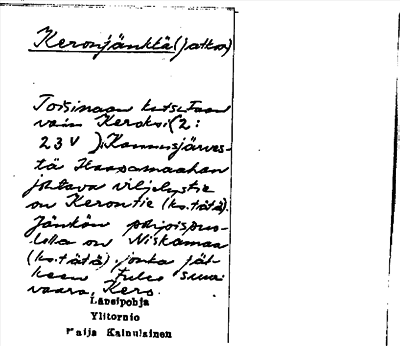 Keronjänkkä (jatkoa)
Toisinaan kutsutaan
vain Keroksi (2:
23 V ). Kannusjärves-
tä Haapamaahan
johtava viljelystie
on Kerontie (ks. tätä).
Jänkän pohjoispuo-
lella on Niskamaa
(ks. tätä), jonka jäl-
keen tulee suuri
vaara, Kero.
Länsipohja
Ylitornio
Maija Kainulainen